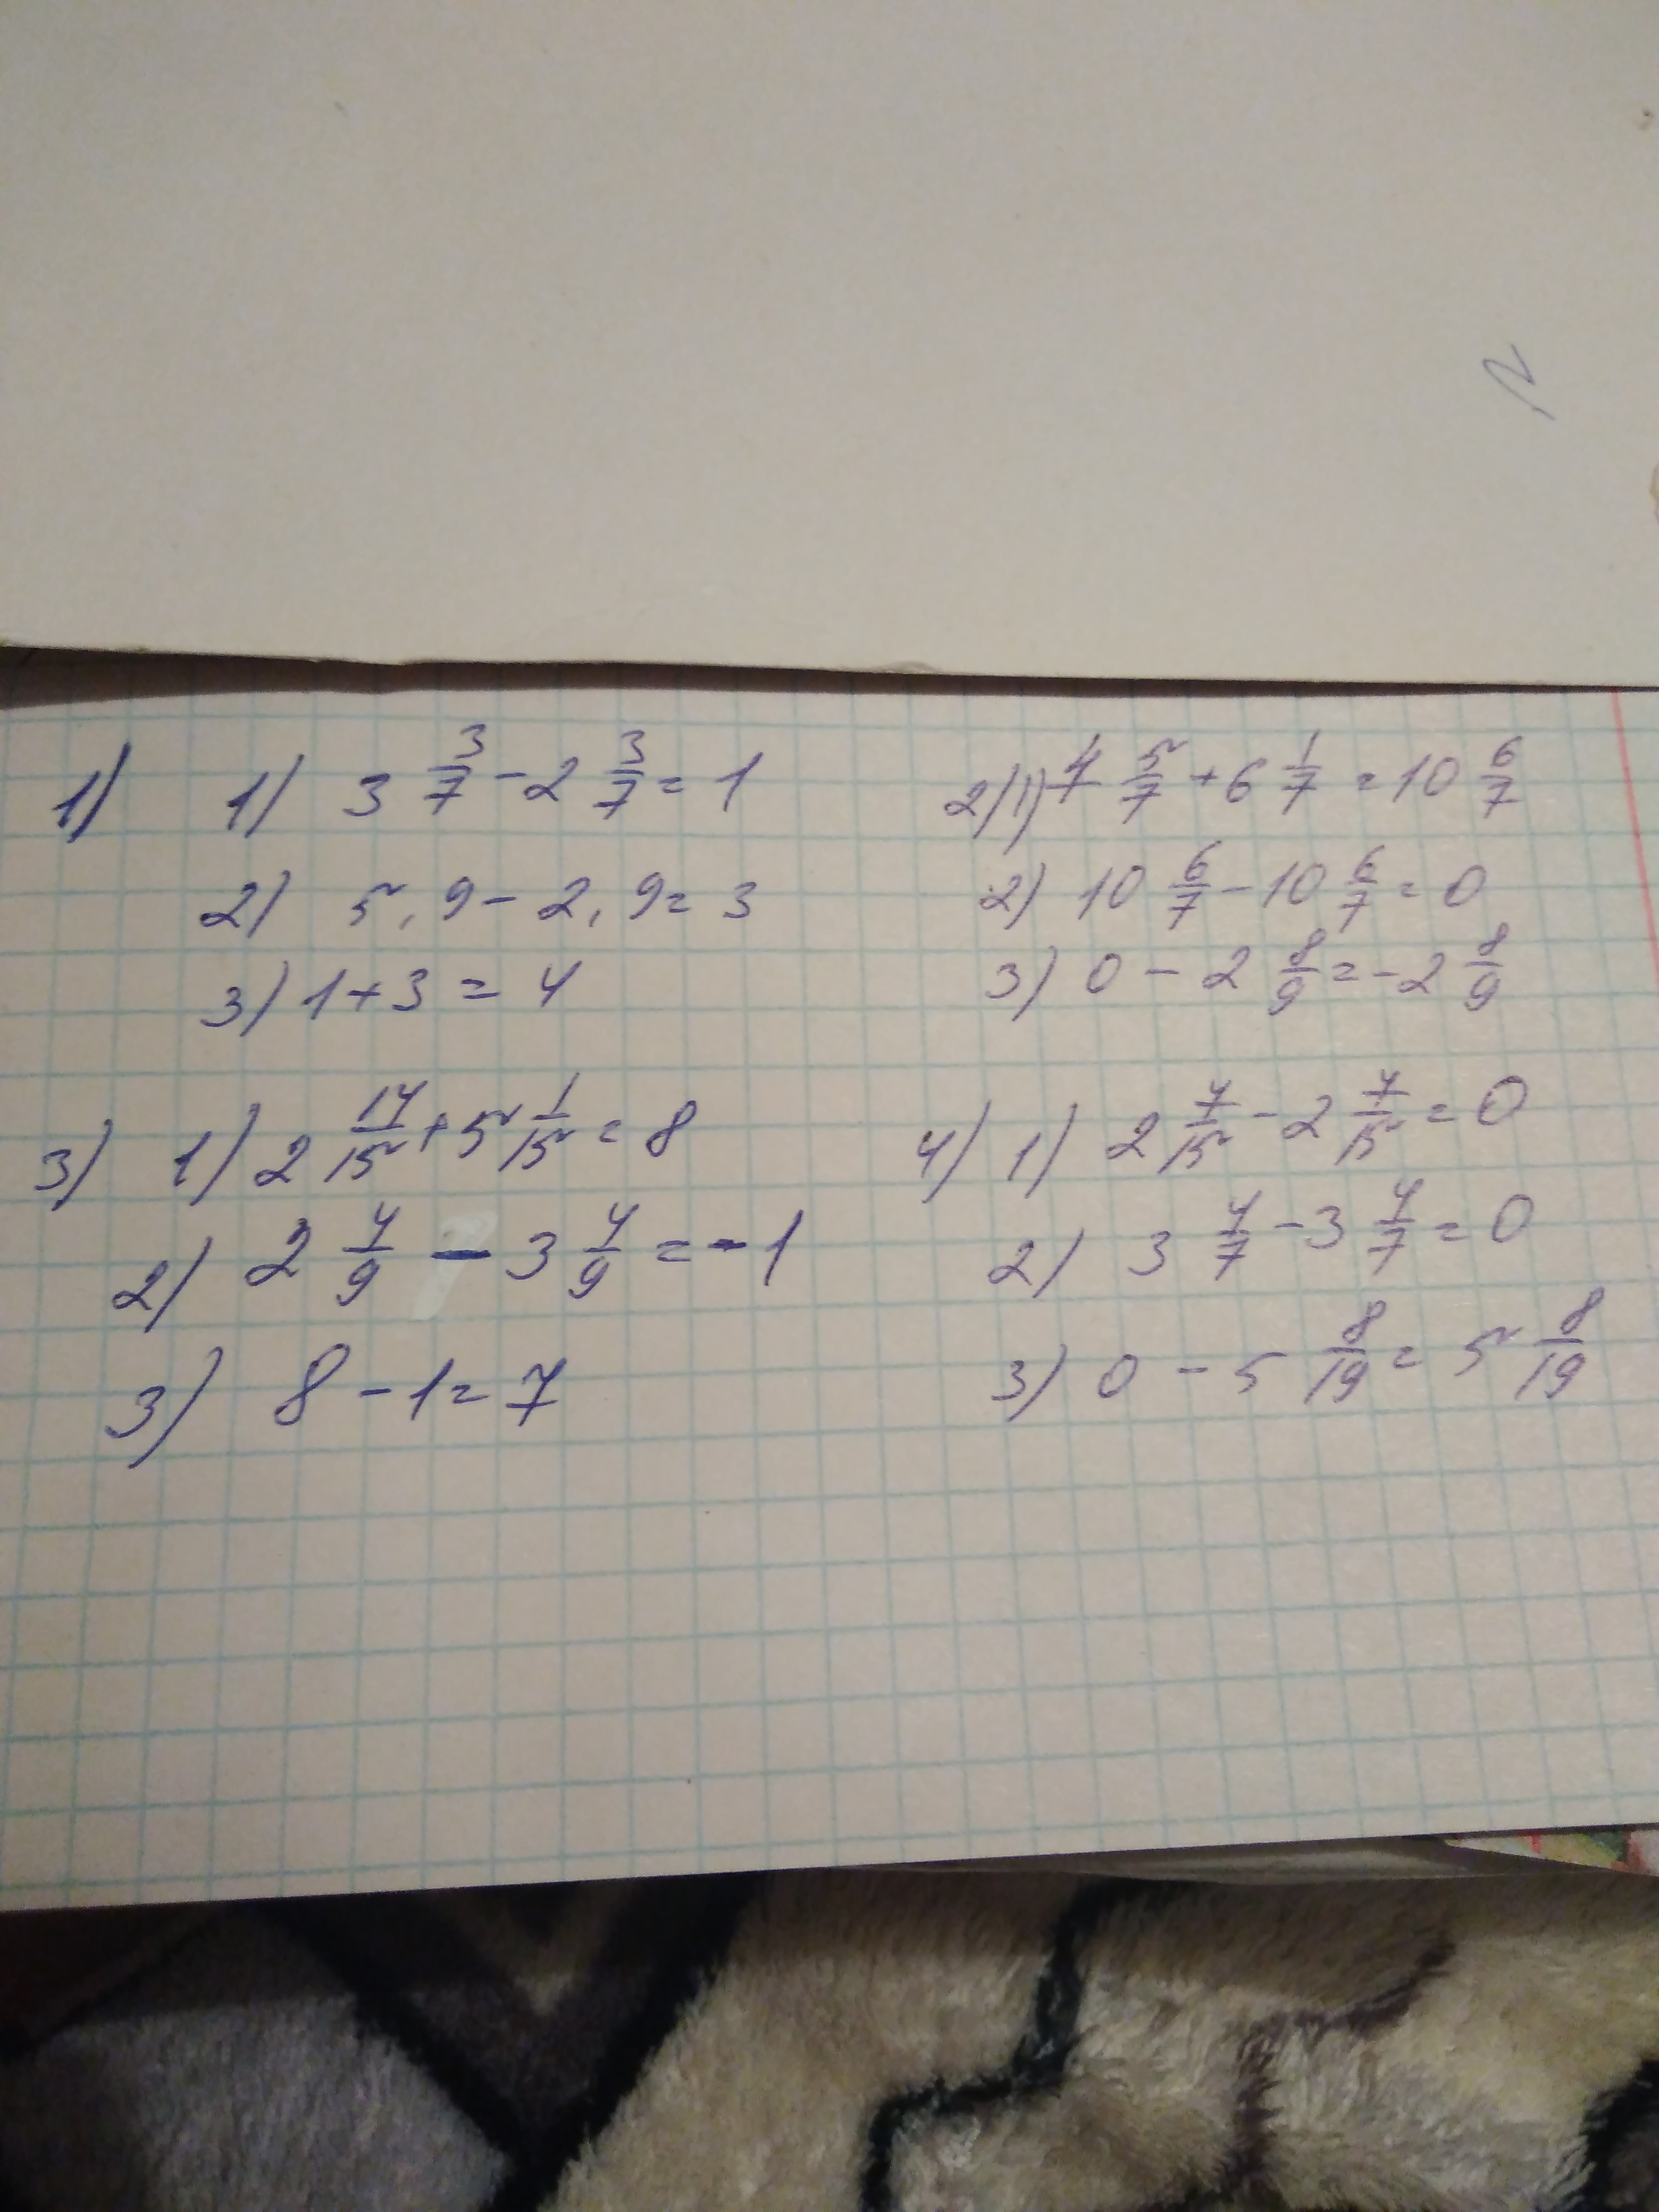 1) 1) 3 3/7 - 2 3/7 = 1
2) 5,9 - 2,9 = 3
3) 1 + 3 = 4
2) 1) 4 5/7 + 6 1/7 = 10 6/7
2) 10 6/7 - 10 6/7 = 0
3) 0 - 2 8/9 = -2 8/9
3) 1) 2 14/15 + 5 1/15 = 8
2) 2 4/9 - 3 4/9 = -1
3) 8 - 1 = 7
4) 1) 2 7/15 - 2 7/15 = 0
2) 3 4/7 - 3 4/7 = 0
3) 0 - 5 8/19 = 5 8/19